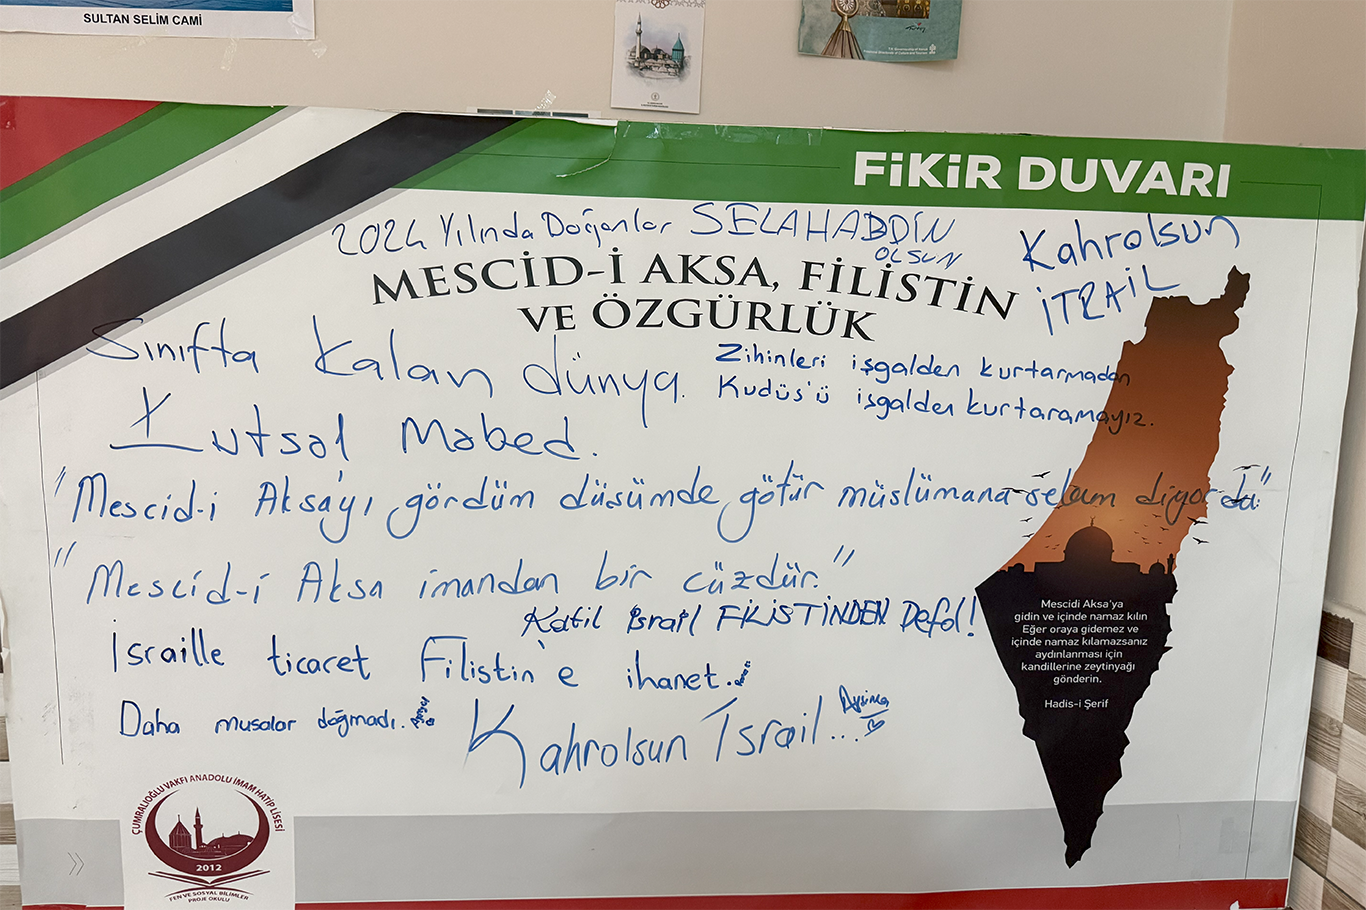 SULTAN SELİM CAMİ
FİKİR DUVARI
2024 Yılında Doğanlar SELAHADDİN
OLSUN
Kahrolsun
İTRAİL
MESCİD-İ AKSA, FİLİSTİN
VE ÖZGÜRLÜK
Sınıfta kalan dünya.
Zihinleri işgalden kurtarmadan
Kudüs'ü işgalden kurtaramayız.
Kutsal Mabed.
"Mescid-i Aksa'yı gördüm düşümde götür müslümana selam diyordu"
"Mescid-i Aksa imandan bir cüzdür."
Katil israil FİLİSTİNDEN Defol!
İsraille ticaret Filistin'e ihanet.
Daha musalar doğmadı..
Kahrolsun İsrail...
Mescidi Aksa'ya
gidin ve içinde namaz kılın
Eğer oraya gidemez ve
içinde namaz kılamazsanız
aydınlanması için
kandillerine zeytinyağı
gönderin.
Hadis-i Şerif
ÇUMRALIOĞLU VAKFI ANADOLU İMAM HATİP LİSESİ
2012
FEN VE SOSYAL BİLİMLER
PROJE OKULU